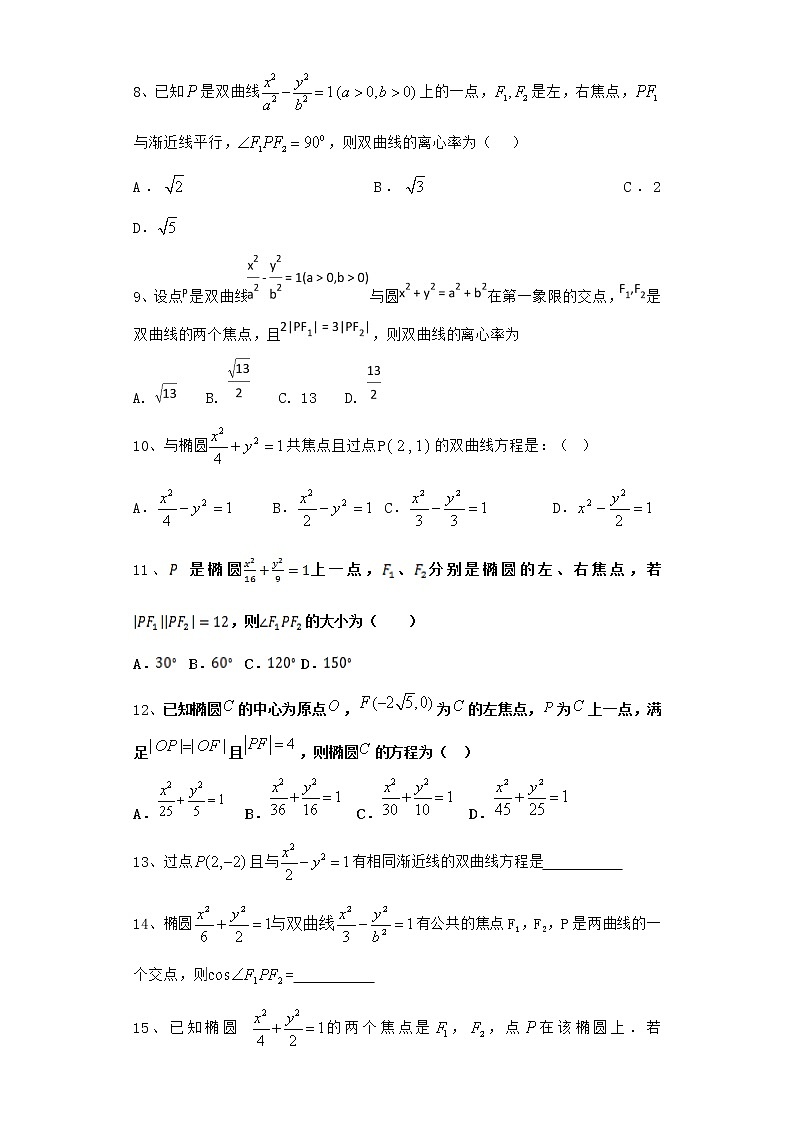 8、已知P是双曲线x²/a²−y²/b²=1(a>0,b>0)上的一点，F₁,F₂是左，右焦点，PF₁
与渐近线平行，∠F₁PF₂=90⁰，则双曲线的离心率为（ ）
A．√2 B．√3 C．2
D．√5
9、设点P是双曲线x²/a²-y²/b²=1(a>0,b>0)与圆x²+y²=a²+b²在第一象限的交点，F₁,F₂是
双曲线的两个焦点，且2|PF₁|=3|PF₂|，则双曲线的离心率为
A. √13 B. √13/2 C. 13 D. 13/2
10、与椭圆x²/4+y²=1共焦点且过点P(2,1)的双曲线方程是:（ ）
A. x²/4−y²=1 B. x²/2−y²=1 C. x²/3−y²/3=1 D. x²−y²/2=1
11、P 是椭圆x²/16+y²/9=1上一点，F₁、F₂分别是椭圆的左、右焦点，若
|PF₁||PF₂|=12，则∠F₁PF₂的大小为（ ）
A．30° B．60° C．120° D．150°
12、已知椭圆C的中心为原点O，F(−2√5,0)为C的左焦点，P为C上一点，满
足|OP|=|OF|且|PF|=4，则椭圆C的方程为（ ）
A．x²/25+y²/5=1 B．x²/36+y²/16=1 C．x²/30+y²/10=1 D．x²/45+y²/25=1
13、过点P(2,−2)且与x²/2−y²=1有相同渐近线的双曲线方程是
14、椭圆x²/6+y²/2=1与双曲线x²/3−y²/b²=1有公共的焦点F₁,F₂,P是两曲线的一
个交点，则cos∠F₁PF₂=
15、已知椭圆 x²/4+y²/2=1的两个焦点是F₁，F₂，点P在该椭圆上．若